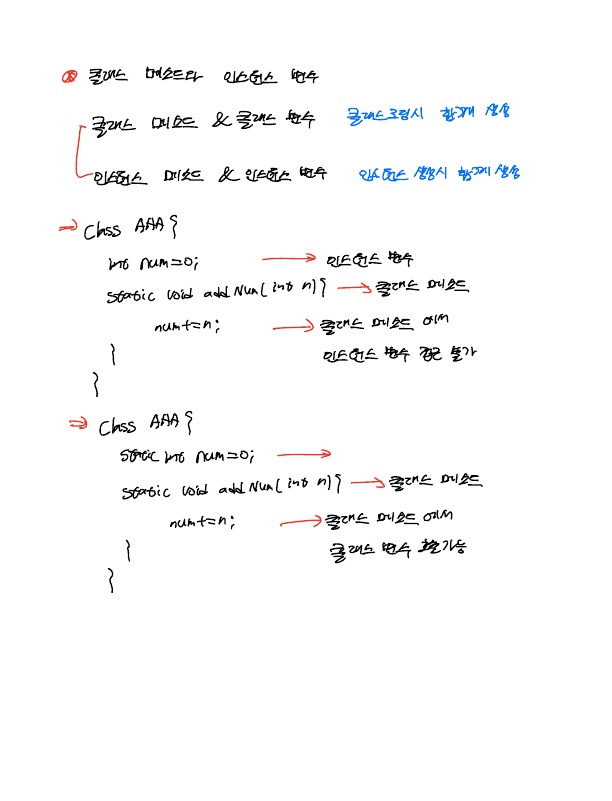 클래스 메소드와 인스턴스 변수
클래스 메소드 & 클래스 변수 클래스로딩시 함께 생성
인스턴스 메소드 & 인스턴스 변수 인스턴스 생성시 함께 생성
⇒ Class AAA {
int num=0; → 인스턴스 변수
static void addNum( int n) { → 클래스 메소드
num+=n; → 클래스 메소드 에서
} 인스턴스 변수 접근 불가
}
⇒ Class AAA {
static int num=0; →
static void addNum( int n) { → 클래스 메소드
num+=n; → 클래스 메소드 에서
} 클래스 변수 호출가능
}